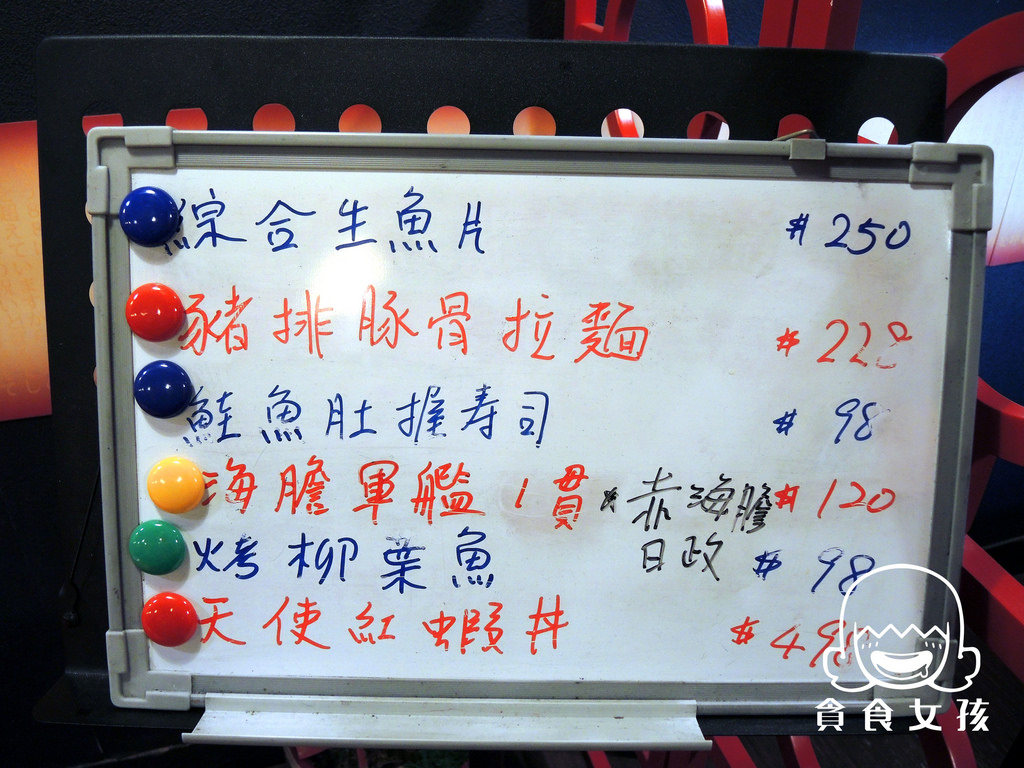 綜合生魚片 # 250
豬排豚骨拉麵 # 228
鮭魚肚握寿司 # 98
海膽軍艦1貫 * 赤海膽 # 120
烤柳葉魚 日政 # 98
天使紅蝦丼 # 498
貪食女孩